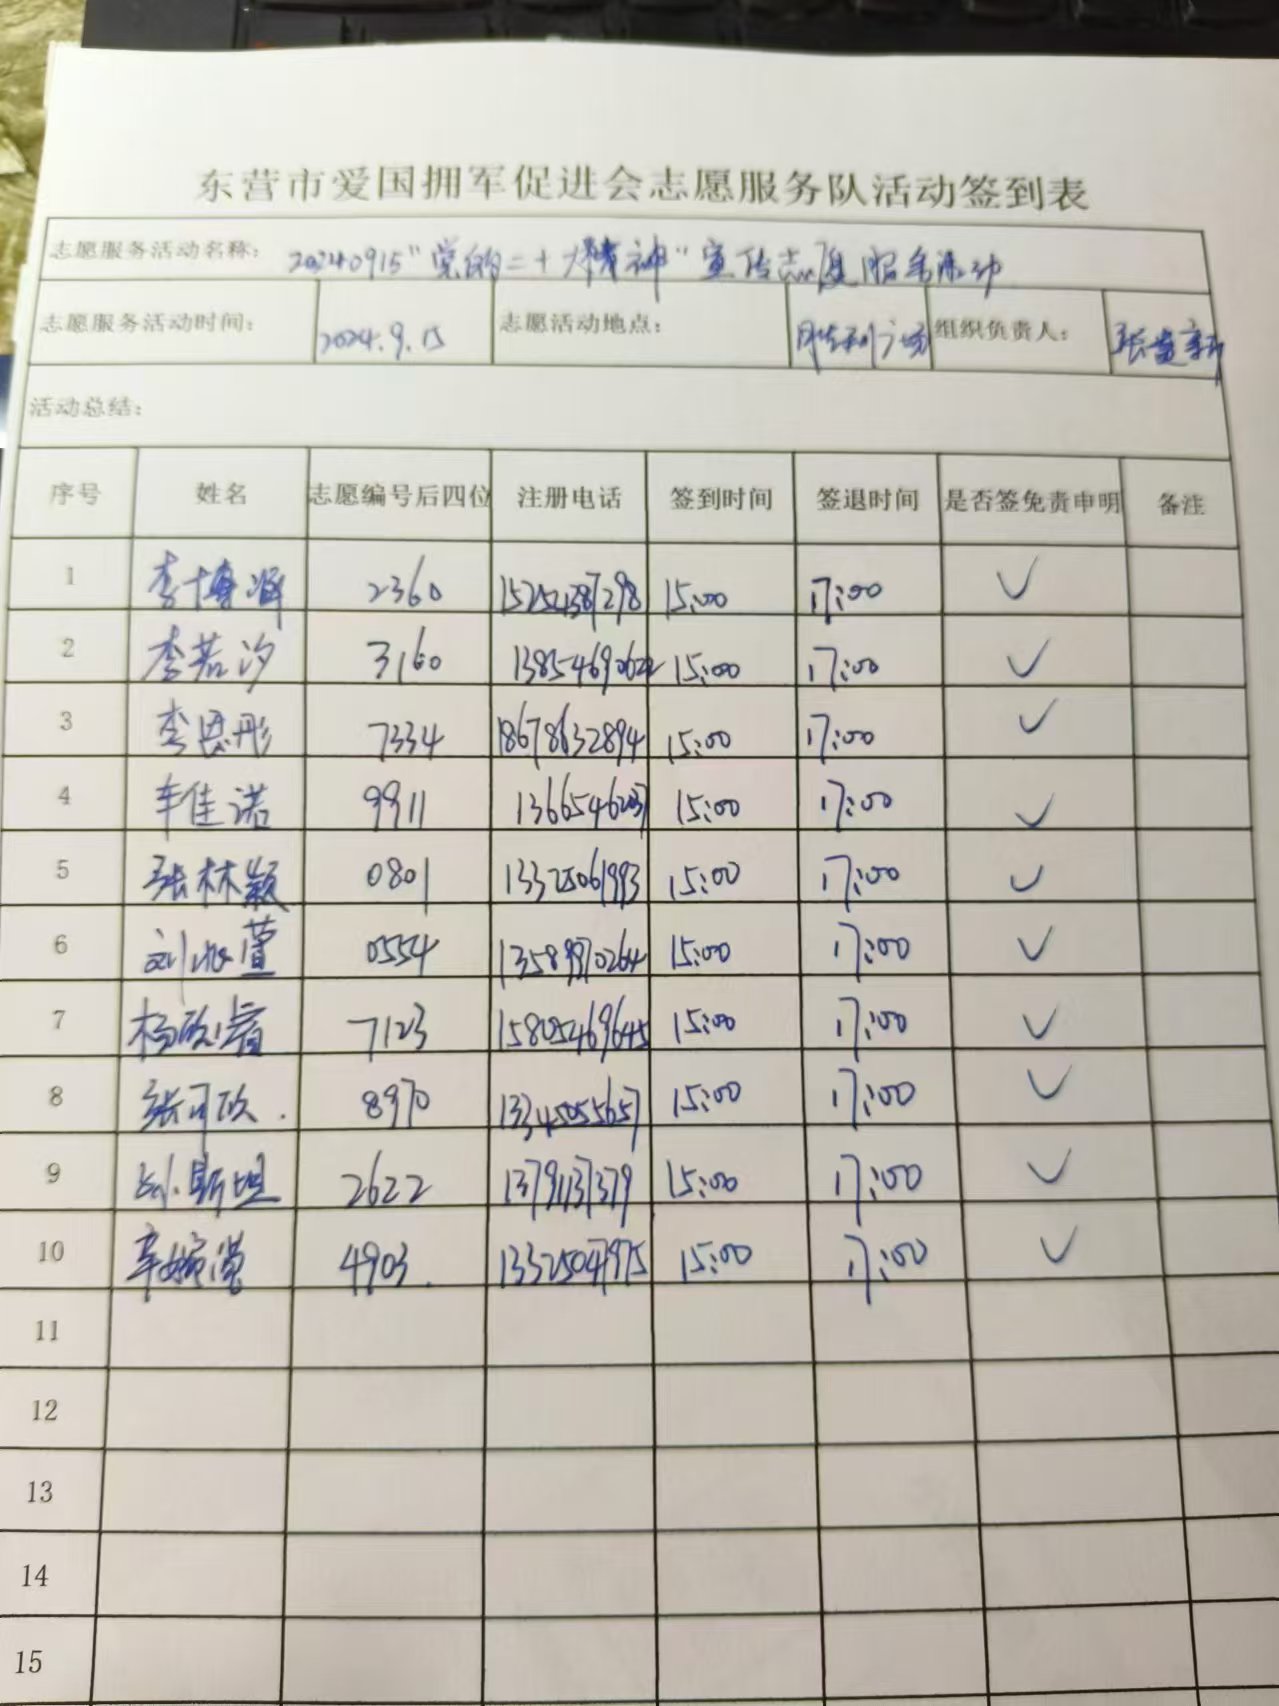 东营市爱国拥军促进会志愿服务队活动签到表
志愿服务活动名称： 20240915“党的二十大精神”宣传志愿服务活动
志愿服务活动时间： 2024.9.15 志愿活动地点： 胜利广场 组织负责人： 张
活动总结：
序号 姓名 志愿编号后四位 注册电话 签到时间 签退时间 是否签免责申明 备注
1 李博 2360 15254387298 15:00 17:00 ✓
2 李若汐 3160 13854690622 15:00 17:00 ✓
3 李恩彤 7334 18678632894 15:00 17:00 ✓
4 车佳诺 9911 15:00 17:00 ✓
5 张林颖 0801 13325061993 15:00 17:00 ✓
6 刘 萱 0554 13589970264 15:00 17:00 ✓
7 杨 7123 15805469645 15:00 17:00 ✓
8 张可欣. 8970 13345055657 15:00 17:00 ✓
9 斯坦 2622 1379137379 15:00 17:00 ✓
10 4903. 13325047975 15:00 17:00 ✓
11
12
13
14
15